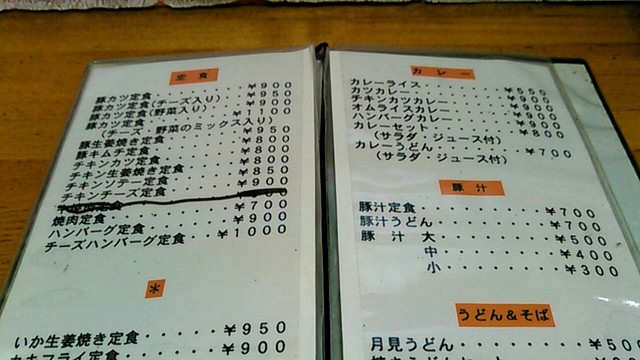 定食
豚カツ定食・・・・・・・・¥900
豚カツ定食(チーズ入り)・・¥950
豚カツ定食(野菜入り)・・・¥900
豚カツ定食・・・・・・・・¥1100
(チーズ 野菜のミックス入り)
豚生姜焼き定食・・・・・・¥950
豚キムチ定食・・・・・・・¥800
チキンカツ定食・・・・・・¥800
チキン生姜焼き定食・・・・¥800
チキンソテー定食・・・・・¥850
チキンチーズ定食・・・・・¥900
・・・・・・¥700
焼肉定食・・・・・・・・・¥900
ハンバーグ定食・・・・・・¥1000
チーズハンバーグ定食・・・
*
いか生姜焼き定食・・・・・¥950
カキフライ定食・・・・・・¥900
カレー
カレーライス・・・・・・・¥550
カツカレー・・・・・・・・¥900
チキンカツカレー・・・・・¥900
オムライスカレー・・・・・¥900
ハンバーグカレー・・・・・¥900
カレーセット・・・・・・・¥800
(サラダ・ジュース付)
カレーうどん・・・・・・・¥700
(サラダ・ジュース付)
豚汁
豚汁定食・・・・・・・・・¥700
豚汁うどん・・・・・・・・¥700
豚 汁 大・・・・・・・・¥500
中・・・・・・・・¥400
小・・・・・・・・¥300
うどん&そば
月見うどん・・・・・・・・¥50